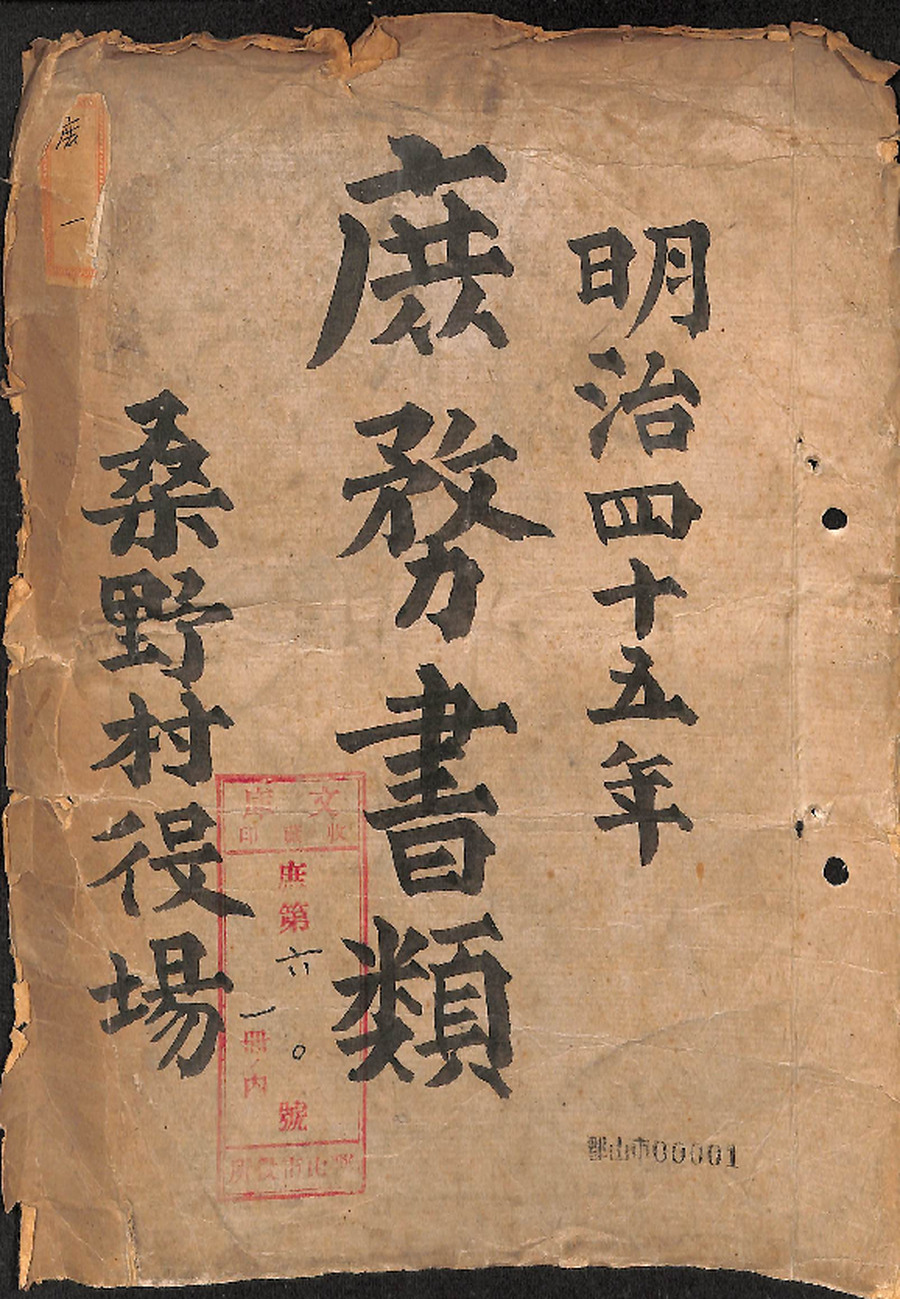 明治四十五年
庶務書類
桑野村役場
庶
一
文庫
收藏印
庶第六〇號
一冊内
郡山市役所
郡山市00001